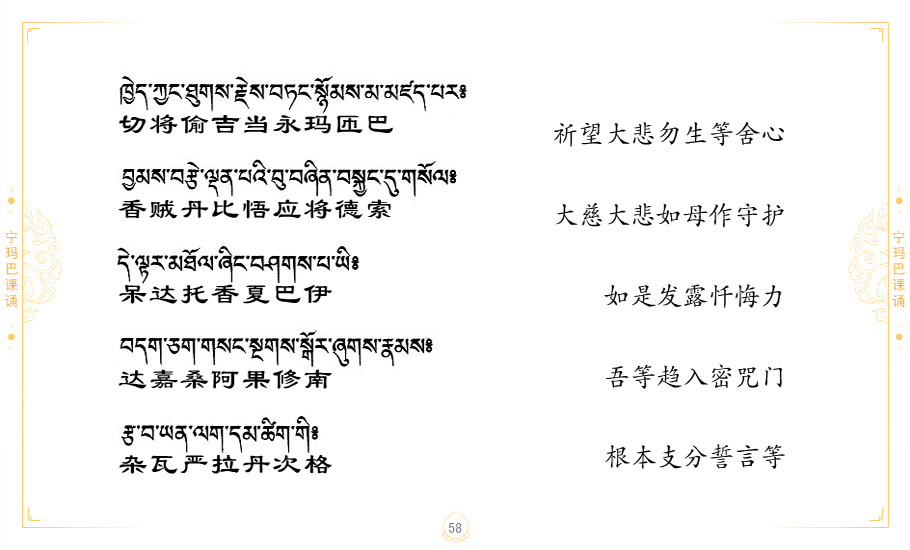 ཁྱེད་ཀྱང་ཐུགས་རྗེས་བཏང་སྙོམས་མ་མཛད་པར༔
切将偷吉当永玛匝巴
祈望大悲勿生等舍心
བྱམས་བརྩེ་ལྡན་པའི་བུ་བཞིན་བསྐྱང་དུ་གསོལ༔
香贼丹比悟应将德索
大慈大悲如母作守护
དེ་ལྟར་མཐོལ་ཞིང་བཤགས་པ་ཡི༔
呆达托香夏巴伊
如是发露忏悔力
བདག་ཅག་གསང་སྔགས་སྒོར་ཞུགས་རྣམས༔
达嘉桑阿果修南
吾等趋入密咒门
རྩ་བ་ཡན་ལག་དམ་ཚིག་གི༔
杂瓦严拉丹次格
根本支分誓言等
宁玛巴课诵
宁玛巴课诵
58